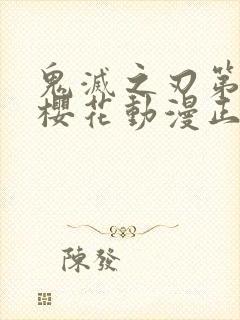 鬼滅之刃第
櫻花動漫正
陳發